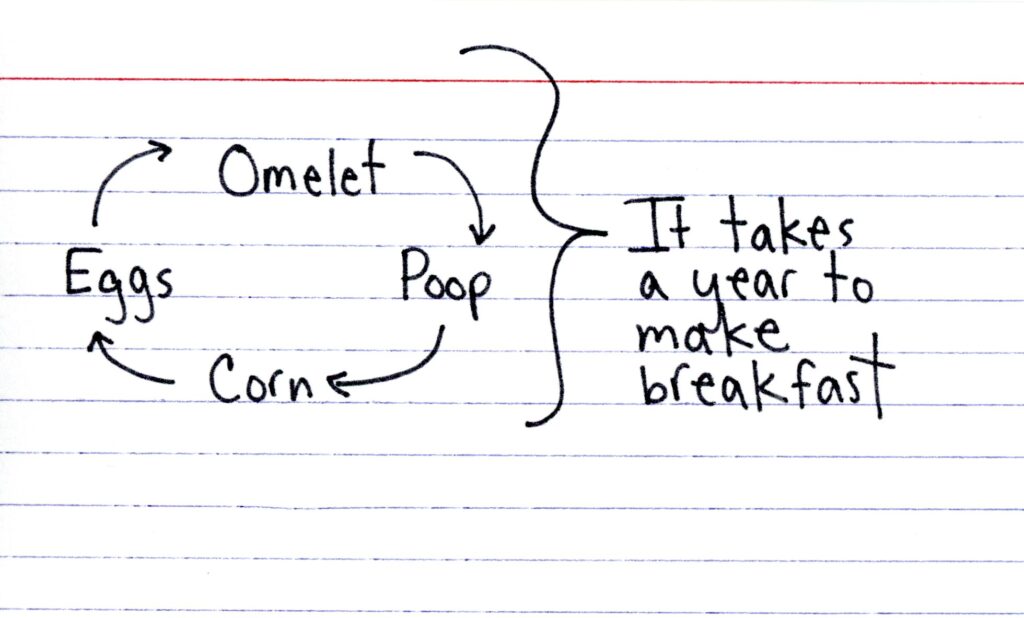 Omelet
Eggs
Poop
Corn
It takes
a year to
make
breakfast